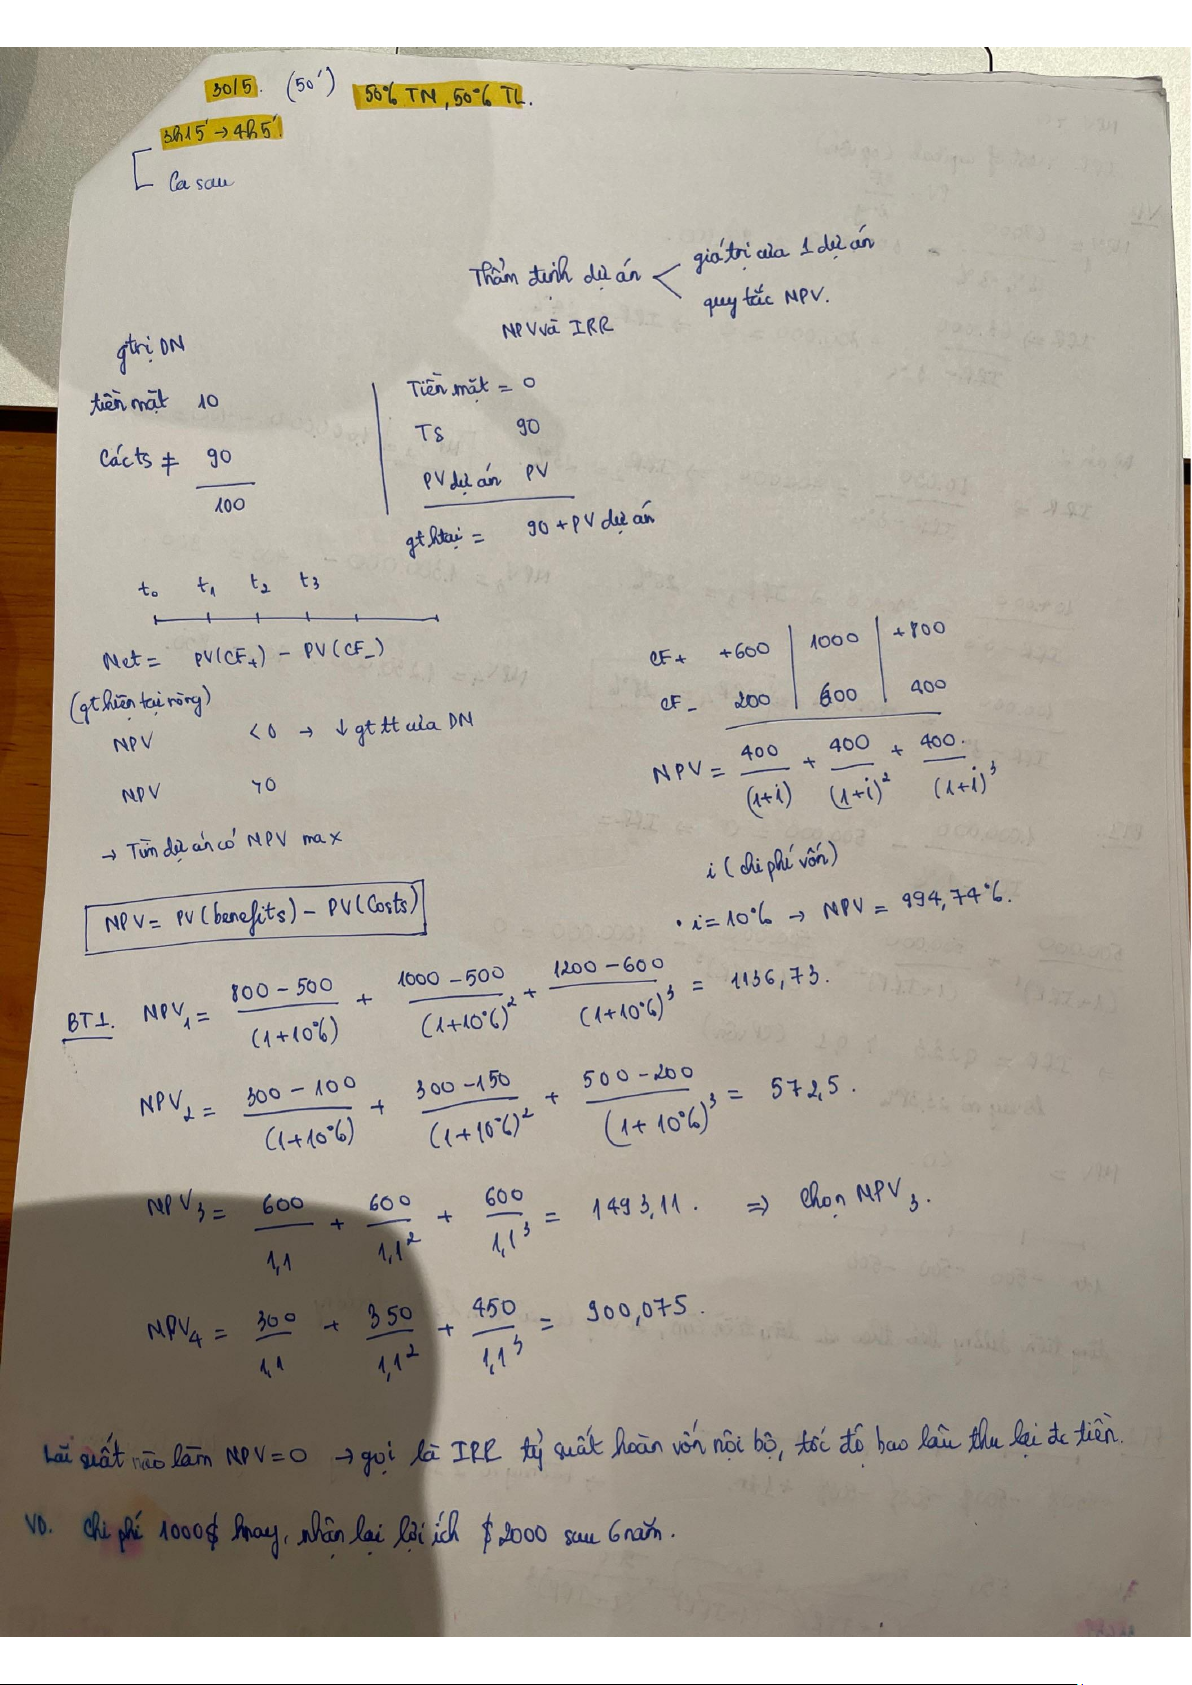 30/5. (50') 50% TN, 50% TL.
3h15' → 4h5'
Ca sau
Thẩm định dự án < giá trị của 1 dự án
quy tắc NPV.
NPV và IRR
gtrị DN
tiền mặt 10
Các ts ≠ 90
100
Tiền mặt = 0
TS 90
PV dự án PV
gt htại = 90 + PV dự án
t₀ t₁ t₂ t₃
Net = PV(CF₊) - PV(CF₋)
(gt hiện tại ròng)
NPV < 0 → ↓ gt tt của DN
NPV > 0
→ Tìm dự án có NPV max
NPV = PV(benefits) - PV(Costs)
CF₊ +600 | 1000 | +800
CF₋ 200 | 600 | 400
NPV = 400/(1+i) + 400/(1+i)² + 400/(1+i)³
i (chi phí vốn)
• i = 10% → NPV = 994,74%.
BT1. NPV₁ = (800-500)/(1+10%) + (1000-500)/(1+10%)² + (1200-600)/(1+10%)³ = 1136,73.
NPV₂ = (300-100)/(1+10%) + (300-150)/(1+10%)² + (500-200)/(1+10%)³ = 572,5.
NPV₃ = 600/1,1 + 600/1,1² + 600/1,1³ = 1493,11. ⇒ Chọn NPV₃.
NPV₄ = 300/1,1 + 350/1,1² + 450/1,1³ = 900,075.
Lãi suất nào làm NPV = 0 → gọi là IRR tỷ suất hoàn vốn nội bộ, tốc độ bao lâu thu lại đc tiền.
VD. Chi phí 1000$ hnay, nhận lại lợi ích $2000 sau 6 năm.